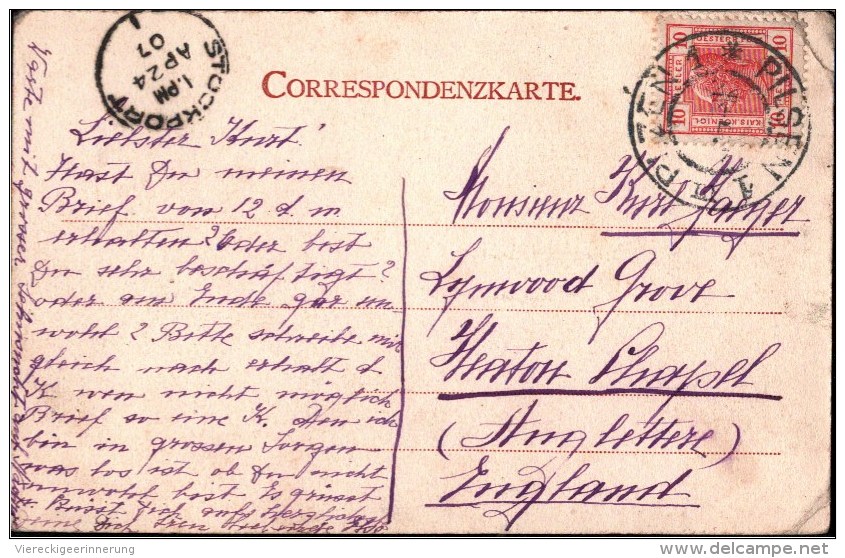 CORRESPONDENZKARTE.
STOCKPORT
1. PM
AP 24
07
10 10
KAIS. KOENIGL.
PILSEN 1
PLZEŇ 1
Liebster Kurt!
Hast Du meinen
Brief vom 12 d. m
erhalten? Oder bist
Du sehr beschäftigt?
oder am Ende gar un
wohl? Bitte schreibe mir
gleich nach erhalt d
K wen nicht möglich
Brief so eine K. Den ich
bin in grossen Sorgen
was los ist ob Du nicht
unwohl bist Es grüsst
u. Küsst Dich aufs herzlichste
Dich
Monsieur Kurt Jaeger
Lynwood Grove
Heaton Chapel
(Angleterre)
England
mit grosser Sehnsucht auf
Viereckigeerinnerung
delcampe.net